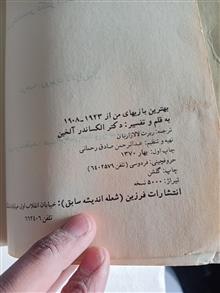 بهترین بازیهای من از ۱۹۲۳-۱۹۰۸
به قلم و تفسیر: دکتر الکساندر آلخین
ترجمه: ربرت لالازاریان
تهیه و تنظیم: عبدالرحمن صادق رحمانی
چاپ اول: بهار ۱۳۷۰
حروفچینی: فردوسی (تلفن ۶۴۰۲۵۷۶)
چاپ: گلشن
تیراژ: ۵۰۰۰ نسخه
انتشارات فرزین (شعله اندیشه سابق): خیابان انقلاب اول
تلفن ۶۶۲۴۰۶